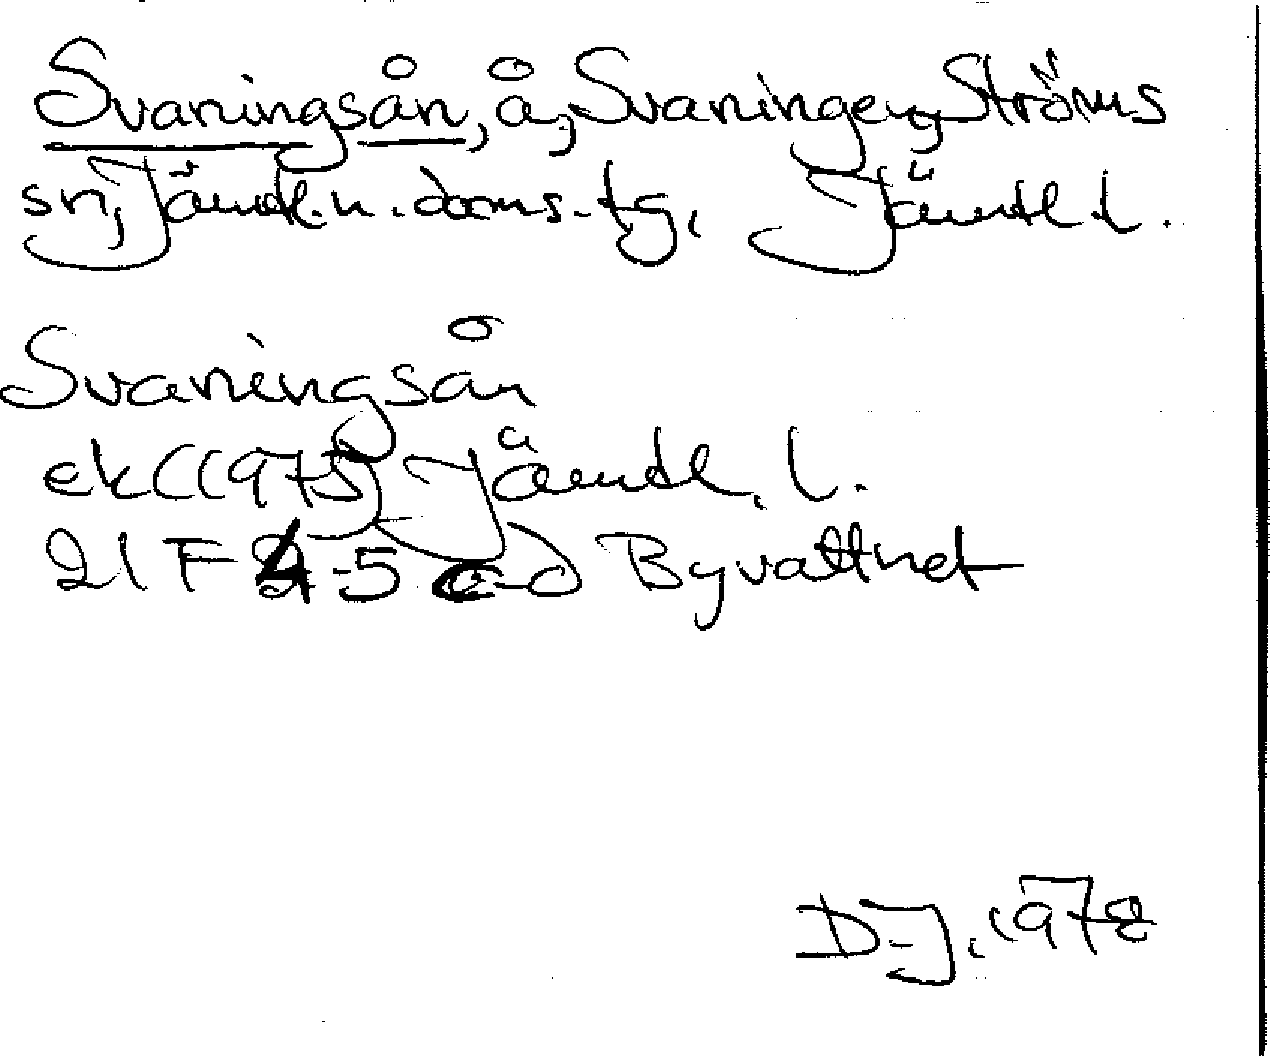 Svaningsån, å, Svaningen, Ströms
sn, Jämtl. n. doms. tg, Jämtl. l.
Svaningsån
ek (1975) Jämtl. l.
21 F 4-5 c-d Byvattnet
D-J. 1978